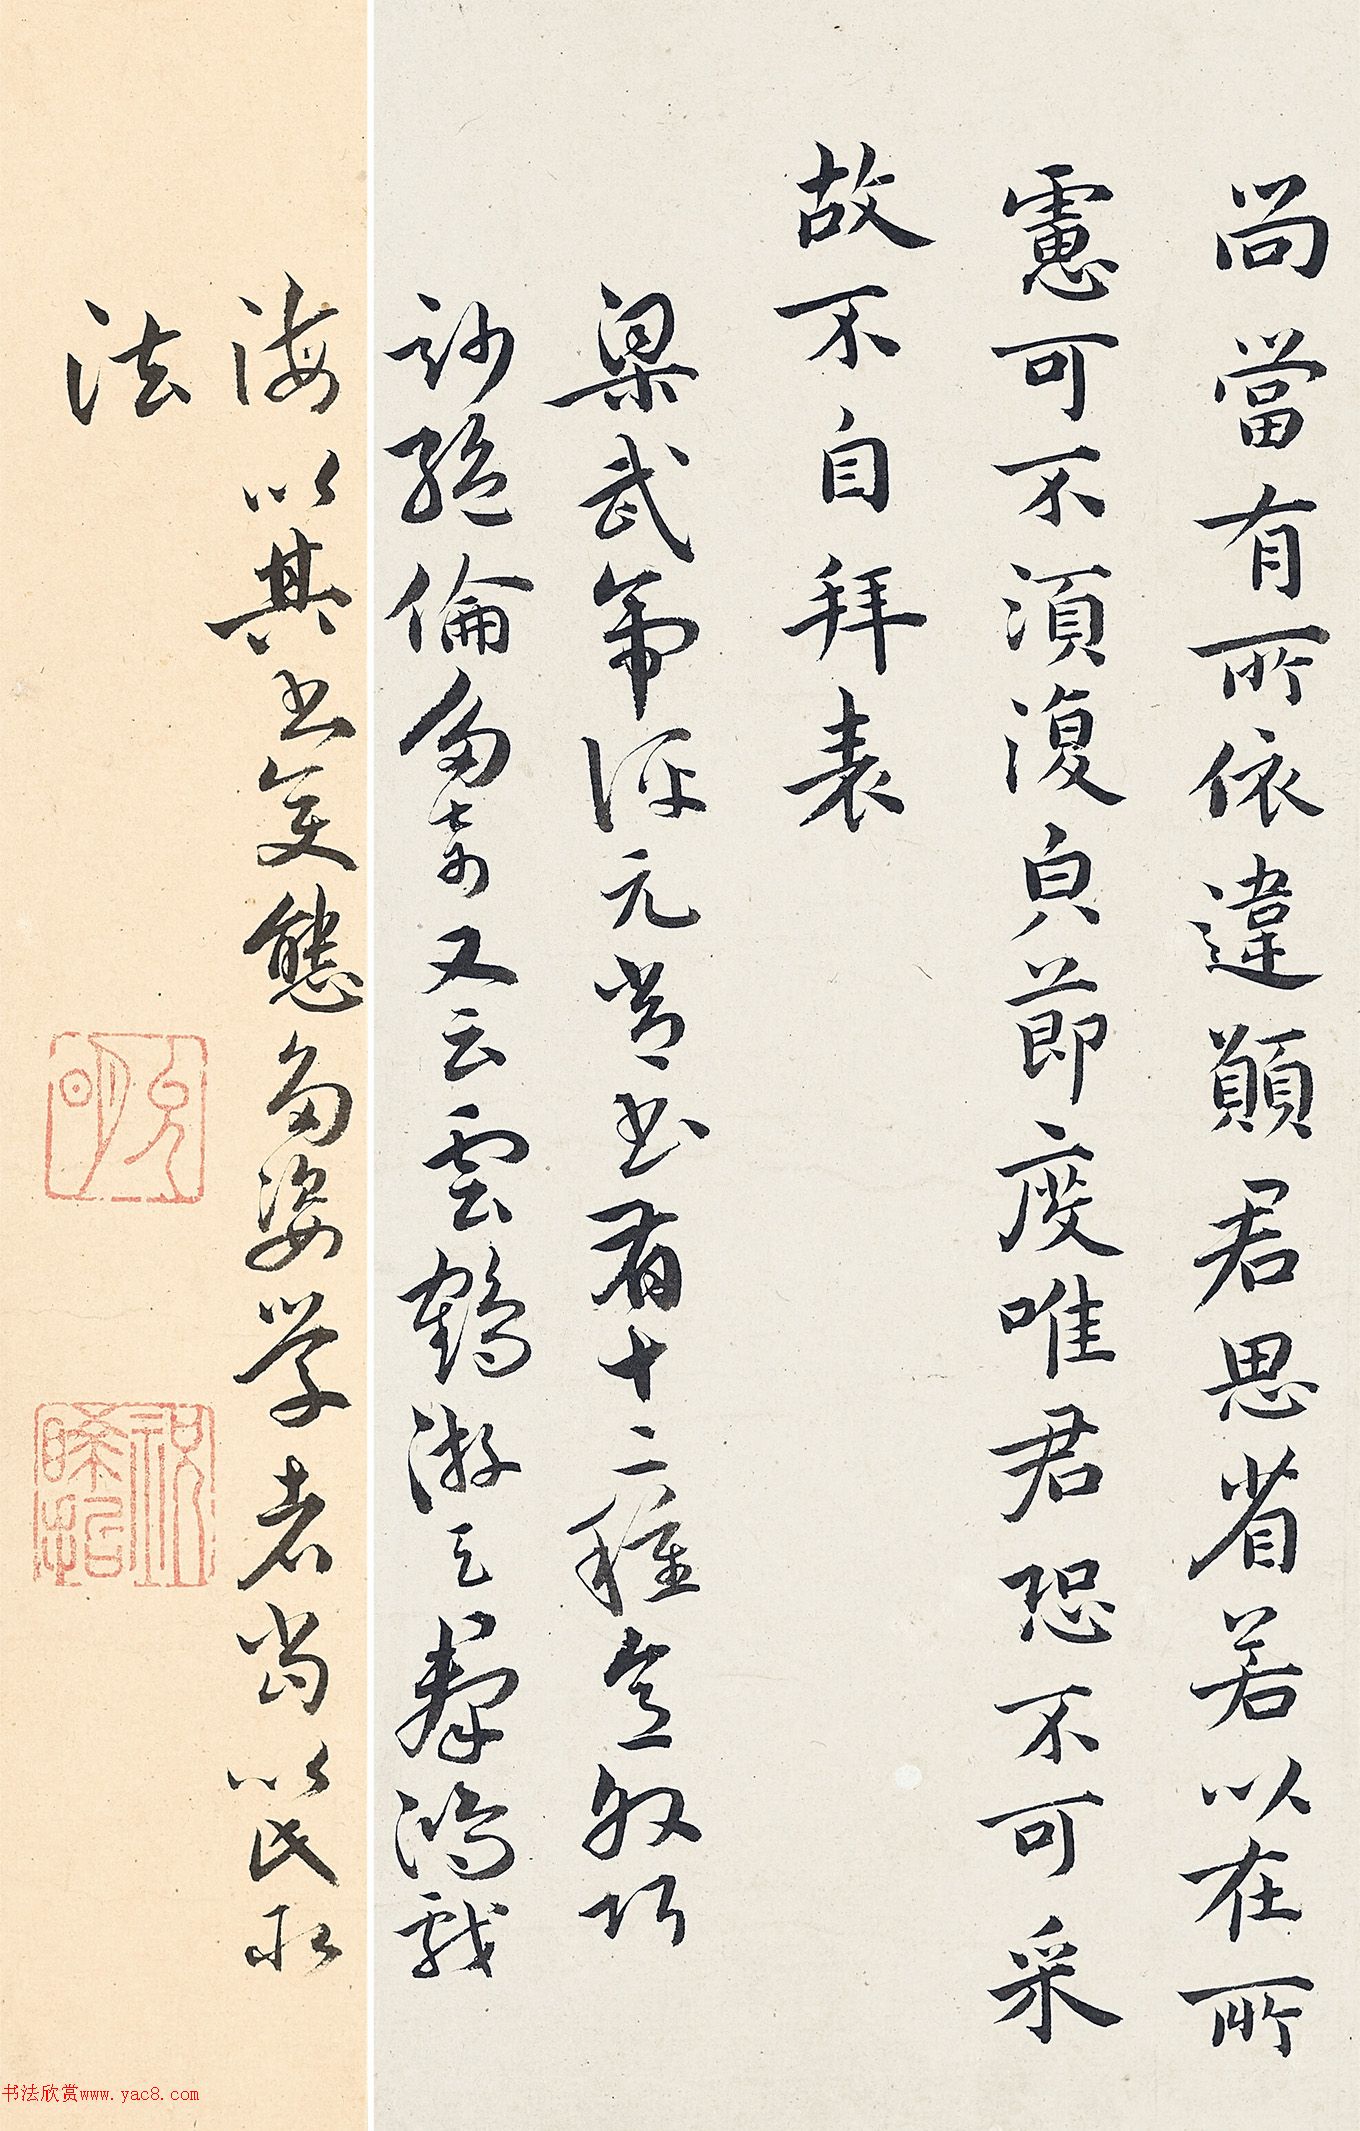 尚當有所依違願君思省若以在所
慮可不須復皃節度唯君恐不可采
故不自拜表
梁武帝評元常書有十二種意外巧
妙絕倫多奇又云雲鶴遊天羣鴻戲
海以其書矣態多姿学者當以民承
法
允明
祝晞哲
书法欣赏www.yac8.com